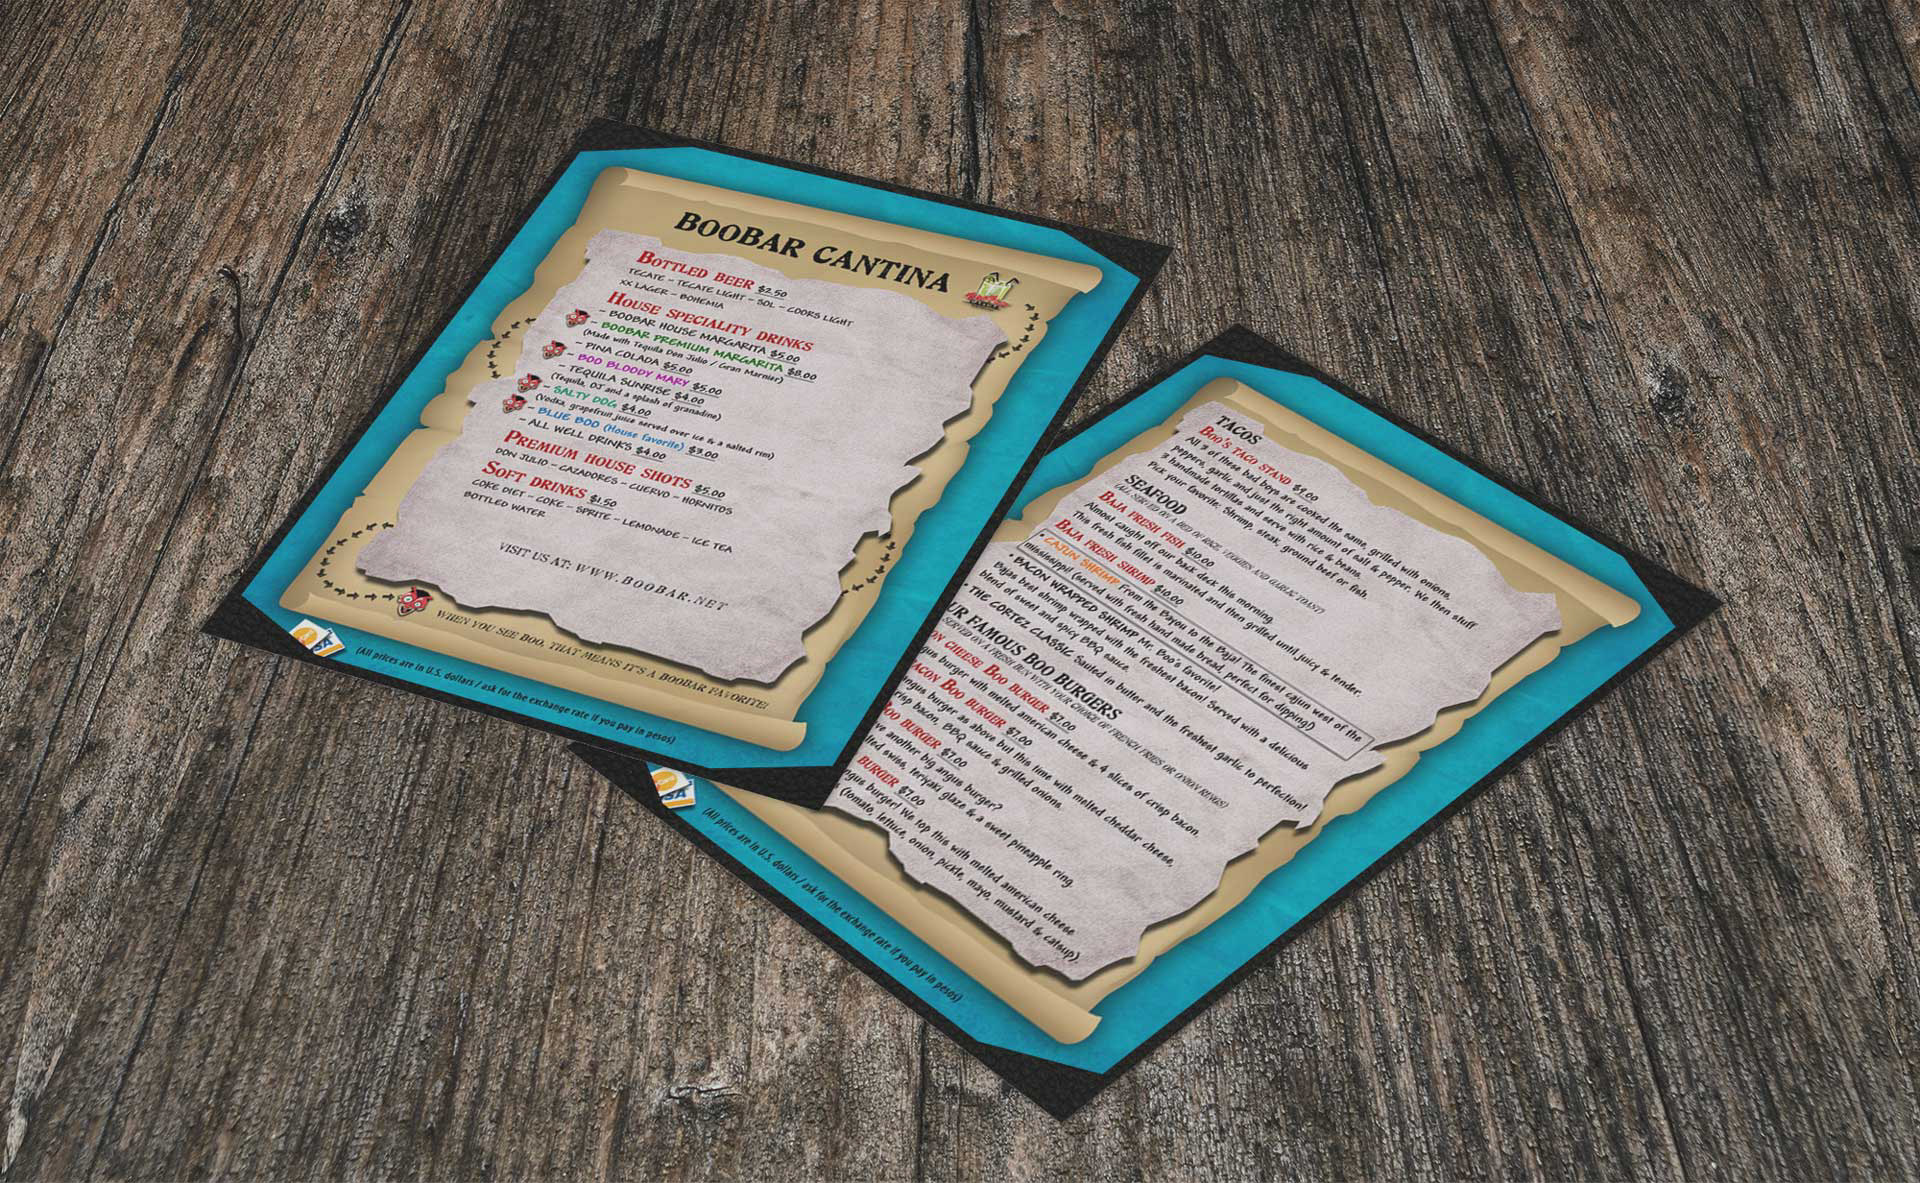 BOOBAR CANTINA
BOTTLED BEER $2.50
TECATE – TECATE LIGHT – SOL – COORS LIGHT
XX LAGER – BOHEMIA
HOUSE SPECIALITY DRINKS
– BOOBAR HOUSE MARGARITA $5.00
– BOOBAR PREMIUM MARGARITA $8.00
(Made with Tequila Don Julio / Gran Marnier)
– PINA COLADA $5.00
– BOO BLOODY MARY $5.00
– TEQUILA SUNRISE $4.00
(Tequila, OJ and a splash of granadine)
– SALTY DOG $4.00
(Vodka, grapefruit juice served over ice & a salted rim)
– BLUE BOO (House favorite) $3.00
– ALL WELL DRINKS $4.00
PREMIUM HOUSE SHOTS $5.00
DON JULIO – CAZADORES – CUERVO – HORNITOS
SOFT DRINKS $1.50
COKE DIET – COKE – SPRITE – LEMONADE – ICE TEA
BOTTLED WATER
VISIT US AT: WWW.BOOBAR.NET
WHEN YOU SEE BOO, THAT MEANS IT'S A BOOBAR FAVORITE!
(All prices are in U.S. dollars / ask for the exchange rate if you pay in pesos)
TACOS
BOO'S TACO STAND $9.00
All 3 of these bad boys are cooked the same, grilled with onions,
peppers, garlic and just the right amount of salt & pepper. We then stuff
3 handmade tortillas and serve with rice & beans.
Pick your favorite: Shrimp, steak, ground beef or fish.
SEAFOOD
(ALL SERVED ON A BED OF RICE, VEGGIES AND GARLIC TOAST)
BAJA FRESH FISH $10.00
Almost caught off our back deck this morning.
This fresh fish fillet is marinated and then grilled until juicy & tender.
BAJA FRESH SHRIMP $10.00
• CAJUN SHRIMP from the Bayou to the Baja! The finest cajun west of the
mississippi! (served with fresh hand made bread, perfect for dipping!)
• BACON WRAPPED SHRIMP Mr. Boo's favorite!
Bajas best shrimp wrapped with the freshest bacon! Served with a delicious
blend of sweet and spicy BBQ sauce.
• THE CORTEZ CLASSIC Sauteed in butter and the freshest garlic to perfection!
UR FAMOUS BOO BURGERS
SERVED ON A FRESH BUN WITH YOUR CHOICE OF FRENCH FRIES OR ONION RINGS)
ON CHEESE BOO BURGER $7.00
gus burger with melted american cheese & 4 slices of crisp bacon.
ACON BOO BURGER $7.00
ngus burger as above but this time with melted cheddar cheese,
risp bacon, BBQ sauce & grilled onions.
OO BURGER $7.00
ve another big angus burger?
lted swiss, teriyaki glaze & a sweet pineapple ring.
BURGER $7.00
ngus burger! We top this with melted american cheese
(tomato, lettuce, onion, pickle, mayo, mustard & catsup)
(All prices are in U.S. dollars / ask for the exchange rate if you pay in pesos)